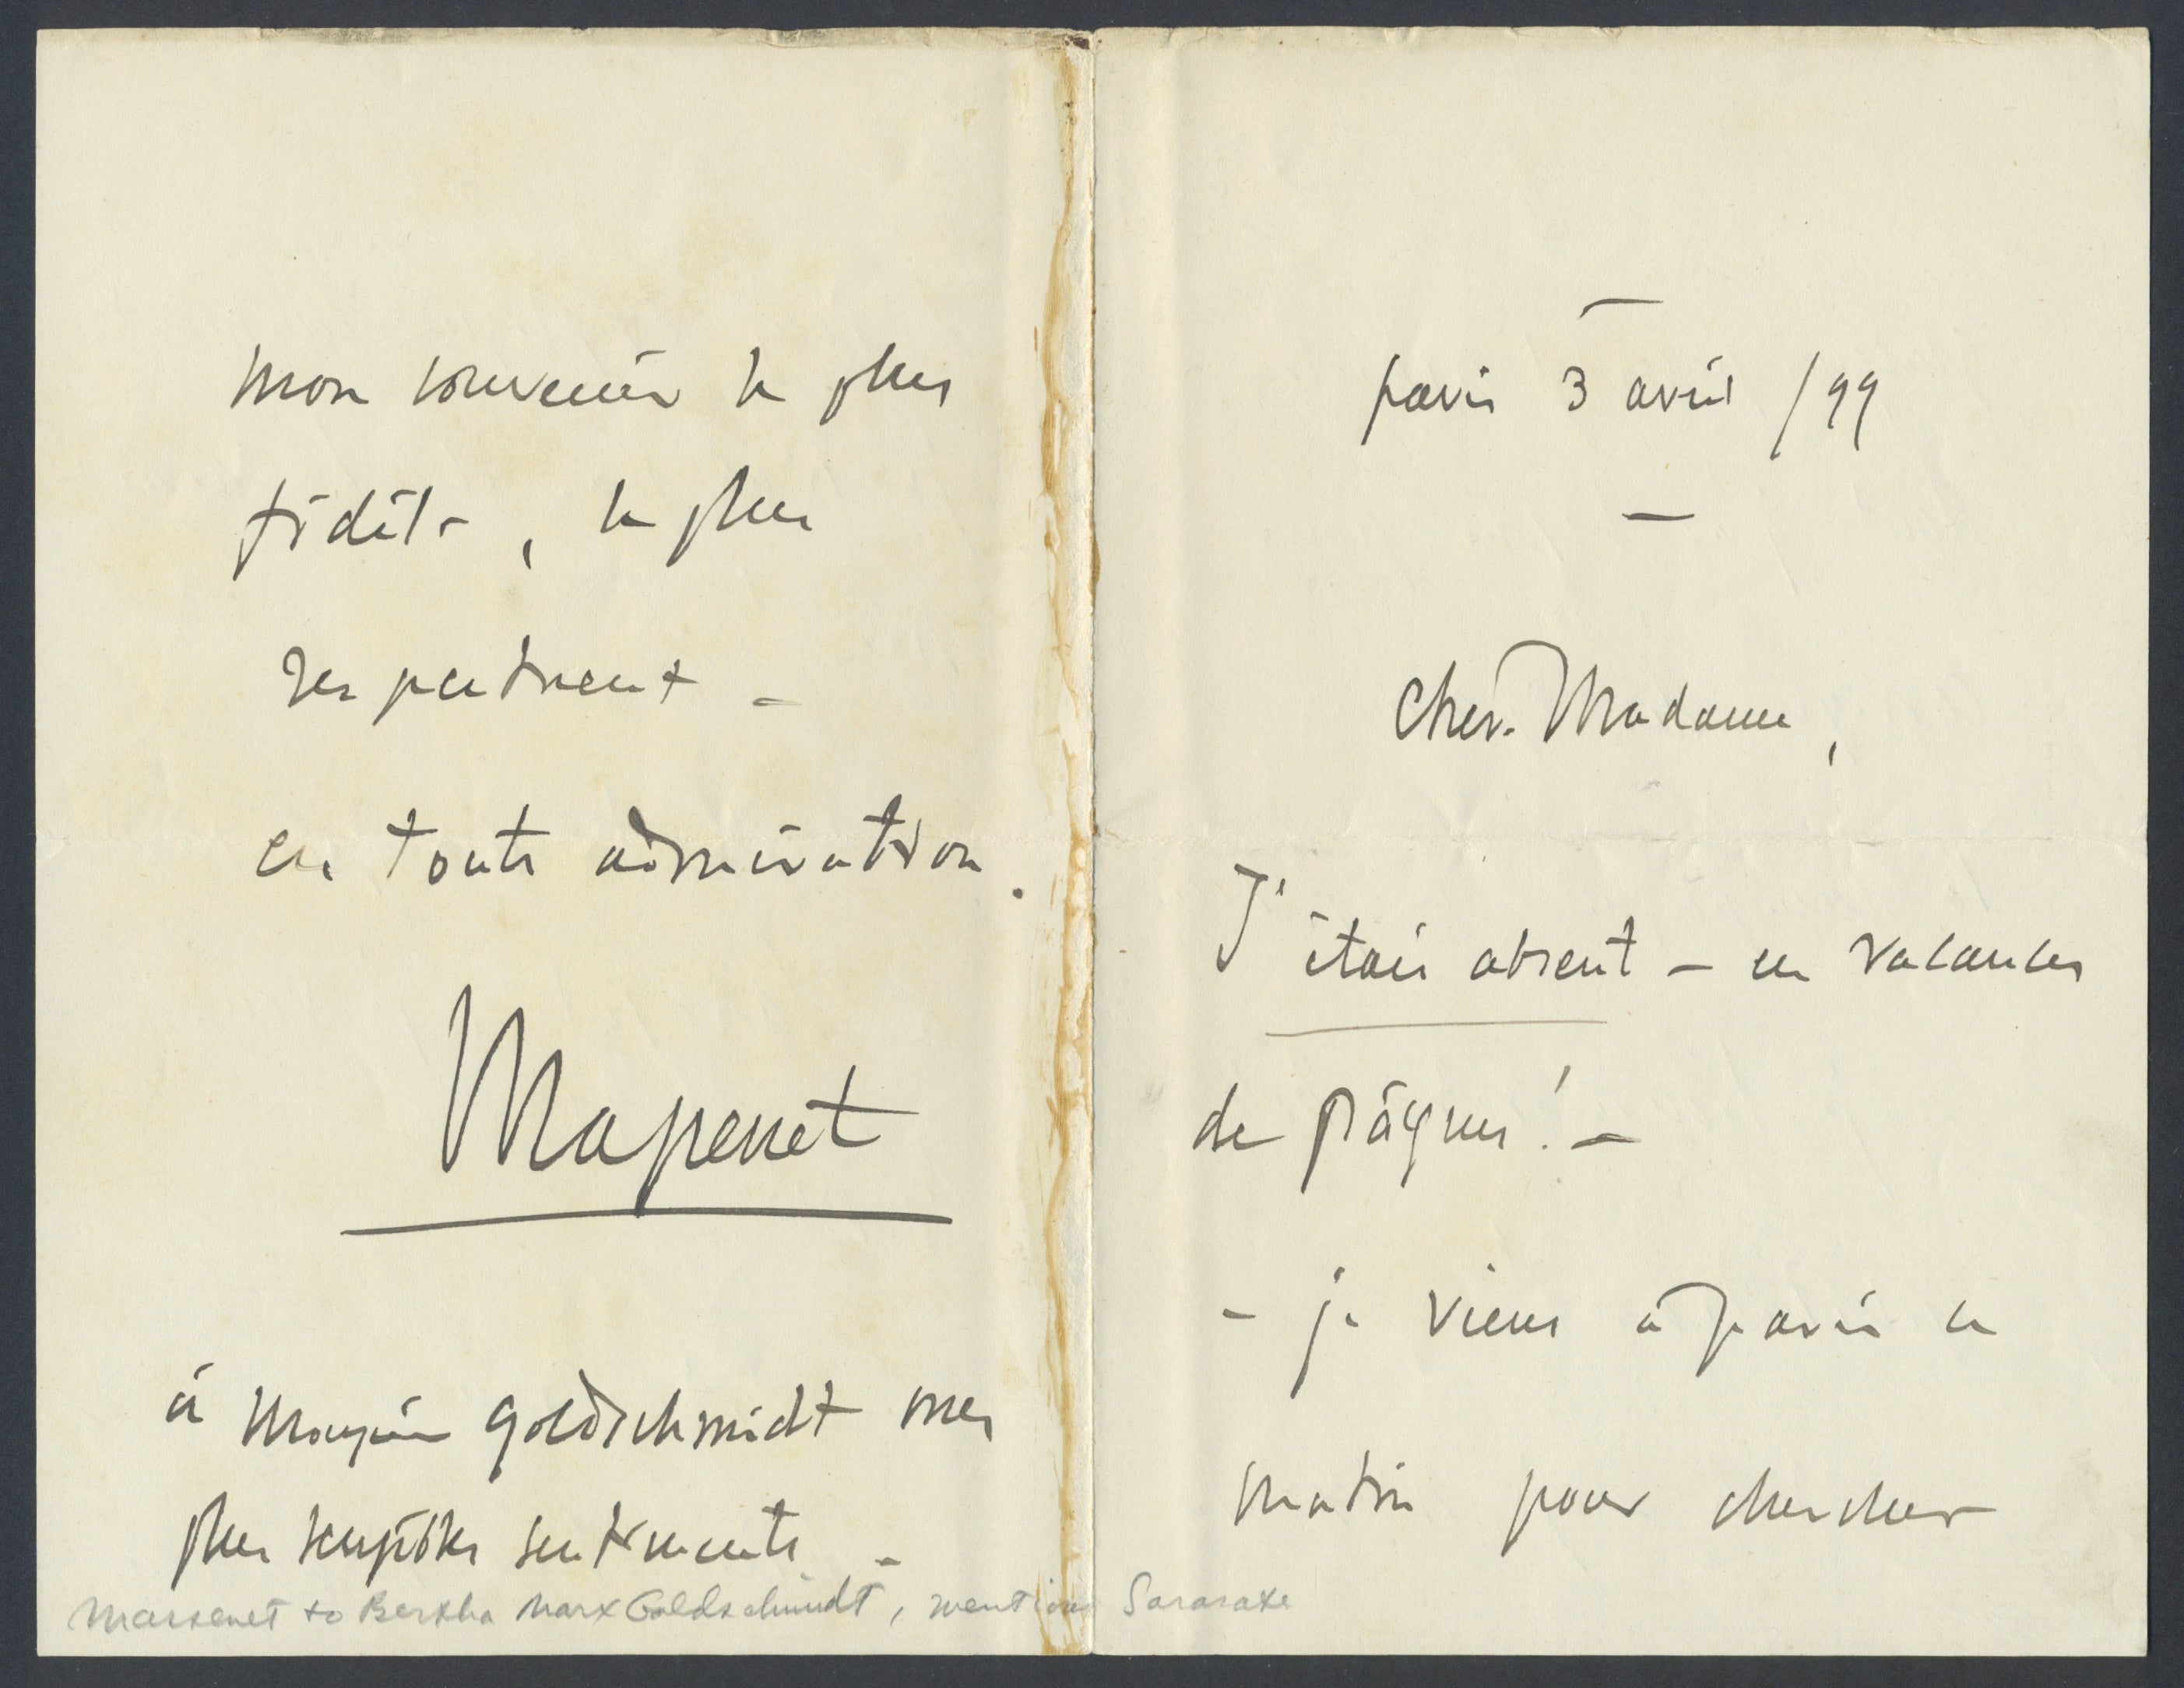 Paris 3 avril /99
Chère Madame,
J'étais absent – en vacances
de Pâques! –
– je viens à Paris ce
matin pour chercher
mon souvenir le plus
fidèle, le plus
respectueux –
en toute admiration.
Massenet
à Monsieur Goldschmidt mes
plus sentiments –
Massenet to Bertha Marx Goldschmidt, mentions Sarasate